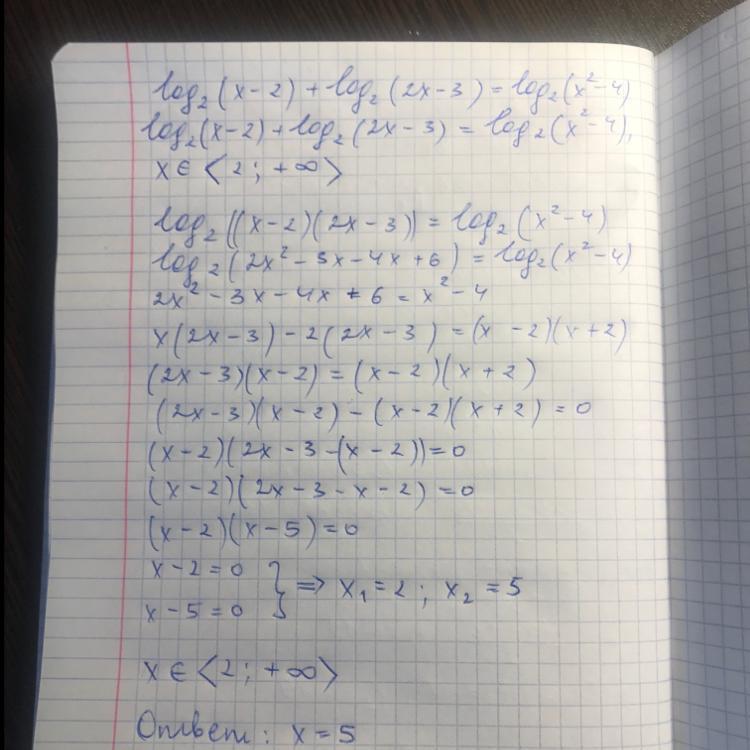 log₂(x-2)+log₂(2x-3)=log₂(x²-4)
log₂(x-2)+log₂(2x-3)=log₂(x²-4),
x∈<2;+∞>
log₂((x-2)(2x-3))=log₂(x²-4)
log₂(2x²-3x-4x+6)=log₂(x²-4)
2x²-3x-4x+6=x²-4
x(2x-3)-2(2x-3)=(x-2)(x+2)
(2x-3)(x-2)=(x-2)(x+2)
(2x-3)(x-2)-(x-2)(x+2)=0
(x-2)(2x-3-(x-2))=0
(x-2)(2x-3-x-2)=0
(x-2)(x-5)=0
x-2=0
x-5=0 } ⇒ x₁=2; x₂=5
x∈<2;+∞>
Ответ: x=5